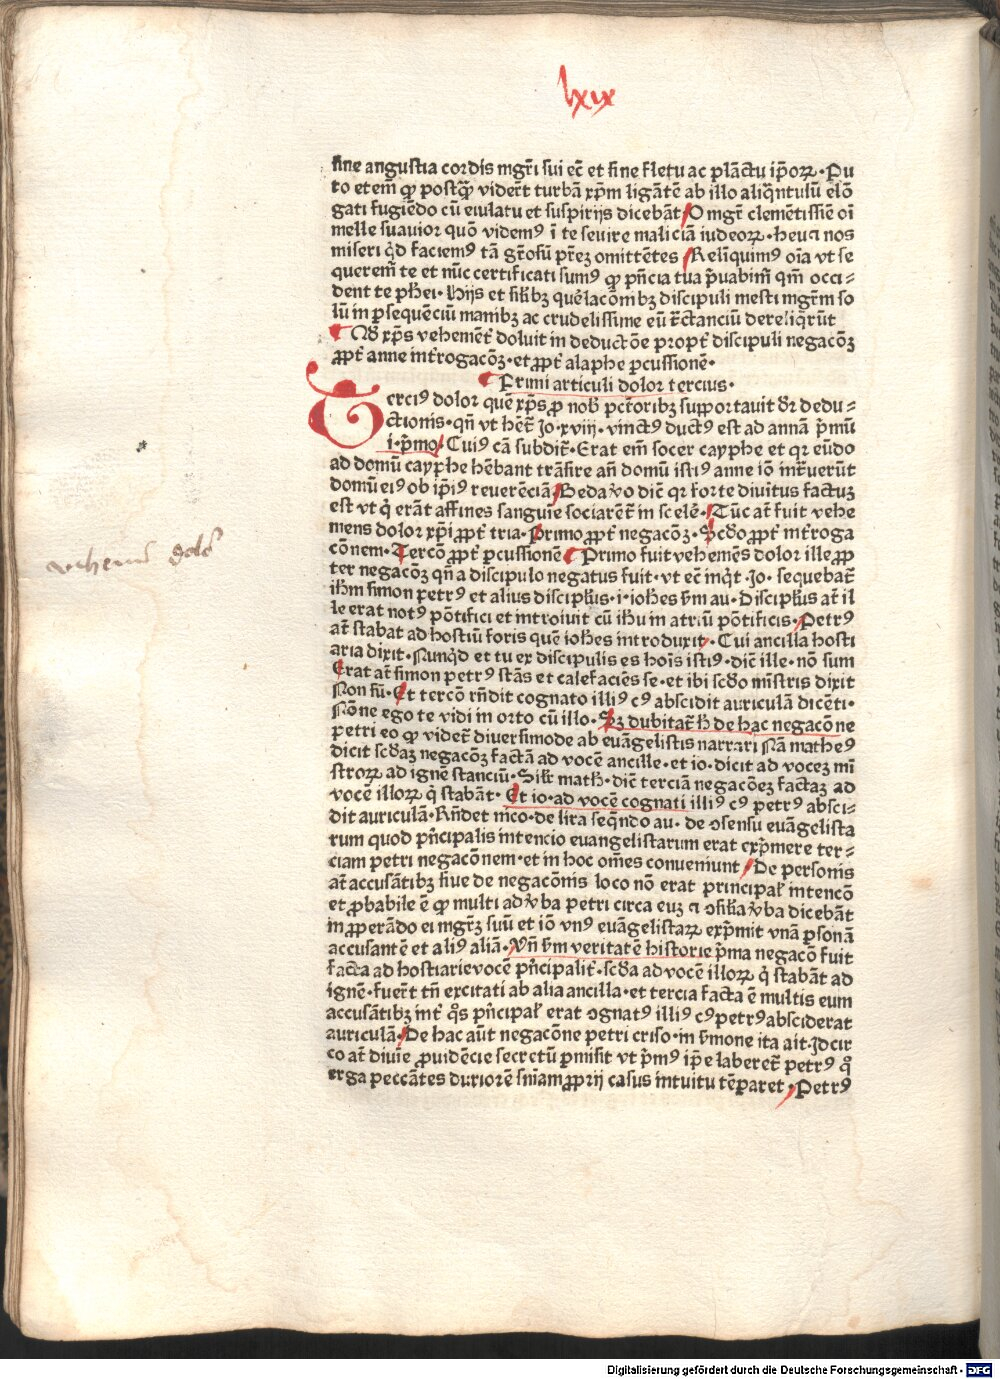 lxix
sine angustia cordis mgr̄i sui ec̄ et sine fletu ac plāctu ip̄oꝝ · Pu
to etem̄ ꝙ postꝙ̄ vider̄t turbā xp̄m ligātē ab illo aliq̄ntulū elō
gati fugiēdo cū eiulatu et suspirijs dicebāt O mgr̄ clemētissīe oī
melle suauior quō videmꝰ ī te seuire maliciā iudeoꝝ · heu a nos
miseri qͥd faciemꝰ tā gr̄osū pr̄ez omittētes Reliquimꝰ oīa vt se
queremͥ te et nūc certificati sumꝰ ꝙ pn̄cia tua p̄uabimͥ qm̄ occi-
dent te phei · Hijs et silibꝫ quēlacōibꝫ discipuli mesti mgr̄m so
lū in ꝑsequēciū manibꝫ ac crudelissime eū tr̄ctanciū dereliq̄rūt
Nō xp̄s vehemēt̄ doluit in deductōe propt̄ discipuli negacōꝫ
ꝓpt̄ anne int̄rogacōꝫ · et ꝓpt̄ alaphe ꝑcussionē ·
Primi articuli dolor tercius ·
Terciꝰ dolor quē xp̄s ꝓ nob̄ pct̄oribꝫ supportauit ē dedu-
ctionis · qn̄ vt hēt̄ Jo · xviij · vinctꝰ ductꝰ est ad annā p̄mū
i · p̄mo · Cuiꝰ cā subdit̄ · Erat em̄ socer cayphe et qr eūdo
ad domū cayphe hēbant trāsire an̄ domū istiꝰ anne iō int̄ruerūt
domū eiꝰ ob ip̄iꝰ reuerēciā Beda v̊o dic̄ qr forte diuitus factuꝫ
est vt qͥ erāt affines sanguīe sociarēt̄ in scelē · Tūc at̄ fuit vehe
mens dolor xp̄i ꝓpt̄ tria · Primo ꝓpt̄ negacōꝫ · Scdo ꝓpt̄ int̄roga
cōnem · Tercō ꝓpt̄ ꝑcussionē Primo fuit vehemēs dolor ille ꝓp
ter negacōꝫ qn̄ a discipulo negatus fuit · vt ec̄ inqͥt · Jo · sequebat̄
ih̄m simon petrꝰ et alius discipl̄us · i · ioh̄es s̄m au · Discipl̄us at̄ il
le erat notꝰ pōtifici et introiuit cū ih̄u in atriū pōtificis · Petrꝰ
at̄ stabat ad hostiū foris quē ioh̄es introduxit · Cui ancilla hosti
aria dixit · Nunqͥd et tu ex discipulis es hoīs istiꝰ · dic̄ ille · nō sum
Erat at̄ simon petrꝰ stās et calefaciēs se · et ibi scdo mīstris dixit
Non sū · Et tercō rn̄dit cognato illiꝰ cꝰ abscidit auriculā dicēti ·
Nōne ego te vidi in orto cū illo · Sꝫ dubitat̄ h̄ de hac negacōne
petri eo ꝙ videt̄ diuersimode ab euāgelistis narrari Nā matheꝰ
dicit scdaꝫ negacōꝫ factā ad vocē ancille · et io · dicit ad voceꝫ mī
stroꝝ ad ignē stanciū · Sil̄r math̄ · dic̄ terciā negacōeꝫ factaꝫ ad
vocē illoꝝ qͥ stabāt · Et io · ad vocē cognati illiꝰ cꝰ petrꝰ absci-
dit auriculā · Rn̄det nico · de lira seqn̄do au · de ꝯsensu euāgelista
rum quod pn̄cipalis intencio euangelistarum erat exp̄mere ter-
ciam petri negacōnem · et in hoc om̄es conueniunt De personis
at̄ accusātibꝫ siue de negacōnis loco nō erat principal̄ intencō
et ꝓbabile ē ꝙ multi ad v̄ba petri circa euꝫ a ꝯsilia v̄ba dicebāt
inꝓꝑādo ei mgr̄ꝫ suū et iō vnꝰ euāgelistaꝝ exp̄mit vnā ꝑsonā
accusantē et aliꝰ aliā · Vn̄ s̄m veritatē historie p̄ma negacō fuit
facta ad hostiarie vocē pn̄cipalit̄ · scda ad vocē illoꝝ qͥ stabāt ad
ignē · fuer̄t tn̄ excitati ab alia ancilla · et tercia facta ē multis eum
accusātibꝫ int̄ qͦs pn̄cipal̄ erat ꝯgnatꝰ illiꝰ cꝰ petrꝰ absciderat
auriculā · De hac aūt negacōne petri criso · in s̄mone ita ait · Jdcir
co at̄ diuīe ꝓuidēcie secretū ꝑmisit vt p̄mꝰ ip̄e laberet̄ petrꝰ qͦ
erga peccātes duriorē sniam ꝓprij casus intuitu tēparet · Petrꝰ
Digitalisierung gefördert durch die Deutsche Forschungsgemeinschaft - DFG